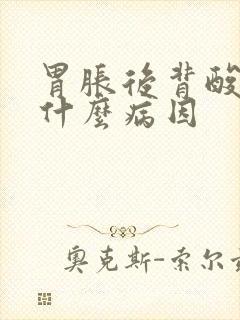 胃脹後背酸
什麼病因
奧克斯-索尔